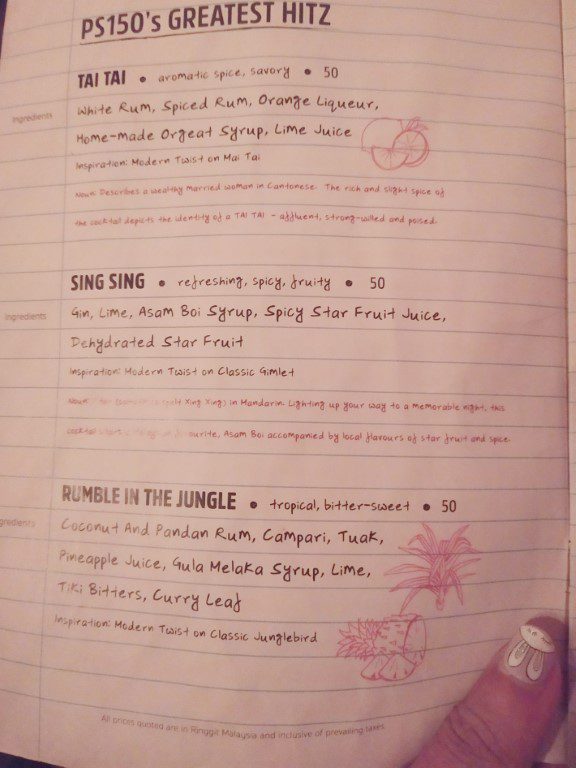 PS150's GREATEST HITZ
TAI TAI • aromatic spice, savory • 50
Ingredients
White Rum, Spiced Rum, Orange Liqueur,
Home-made Orgeat Syrup, Lime Juice
Inspiration: Modern Twist on Mai Tai
Noun: Describes a wealthy married woman in Cantonese. The rich and slight spice of
the cocktail depicts the identity of a TAI TAI - affluent, strong-willed and poised.
SING SING • refreshing, spicy, fruity • 50
Ingredients
Gin, Lime, Asam Boi Syrup, Spicy Star Fruit Juice,
Dehydrated Star Fruit
Inspiration: Modern Twist on Classic Gimlet
Noun: Xing Xing) in Mandarin. Lighting up your way to a memorable night, this
cocktail favourite, Asam Boi accompanied by local flavours of star fruit and spice.
RUMBLE IN THE JUNGLE • tropical, bitter-sweet • 50
gredients
Coconut And Pandan Rum, Campari, Tuak,
Pineapple Juice, Gula Melaka Syrup, Lime,
Tiki Bitters, Curry Leaf
Inspiration: Modern Twist on Classic Junglebird
All prices quoted are in Ringgit Malaysia and inclusive of prevailing taxes.